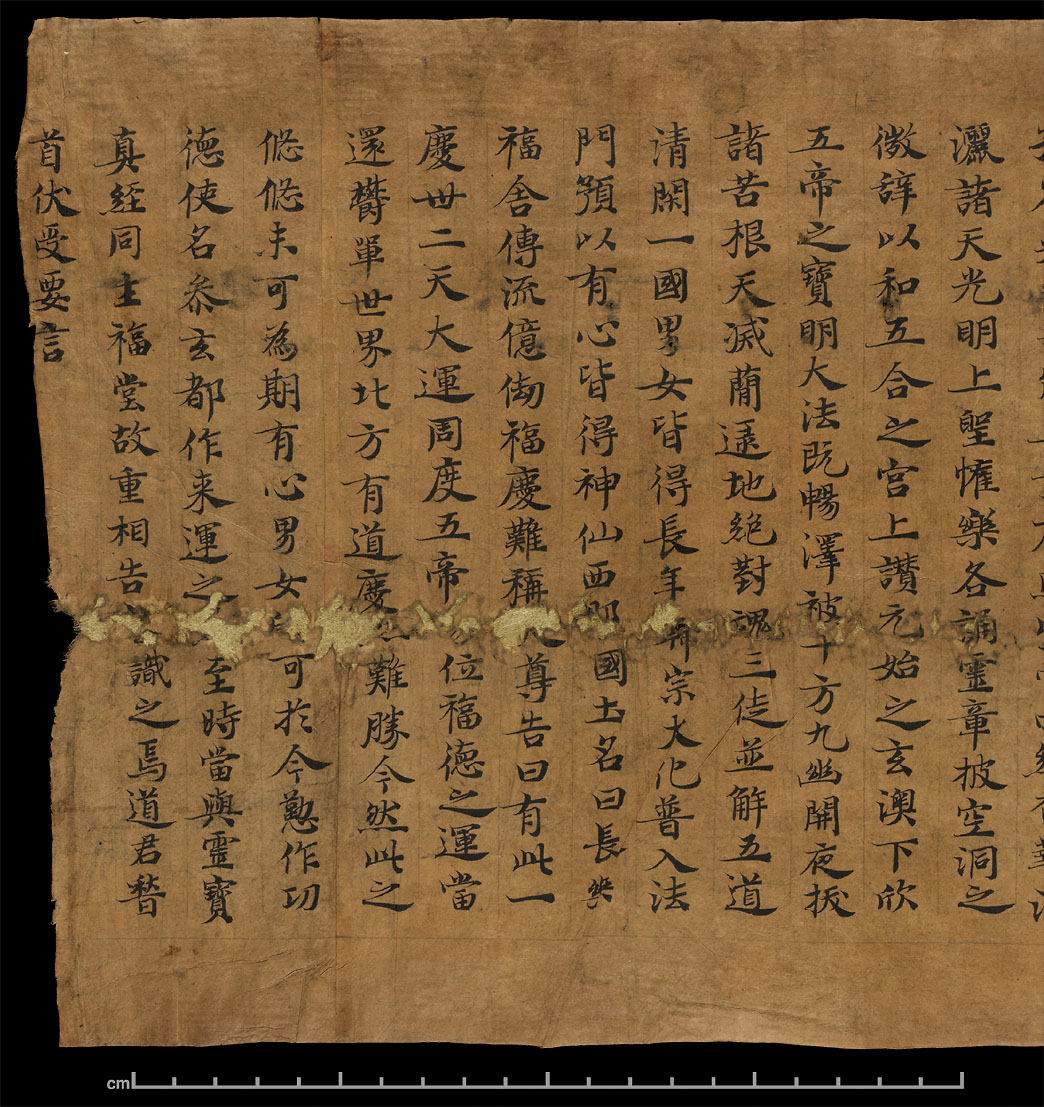 灑諸天光明上聖懽樂各誦靈章披空洞之
微辞以和五合之宮上讚元始之玄澳下欣
五帝之寶明大法既暢澤被十方九幽開夜拔
諸苦根天滅蕳逯地絕對魂三徒並解五道
清閑一國男女皆得長年 宗大化普入法
門預以有心皆得神仙西 國土名曰長樂
福舍傳流億劫福慶難稱 尊告曰有此一
慶世二天大運周度五帝 位福德之運當
還欝單世界北方有道慶 難勝今然此之
悠悠未可為期有心男女 可於今懃作功
德使名叅玄都作来運之 至時當與靈寶
真経同生福堂故重相告 識之焉道君稽
首伏受要言